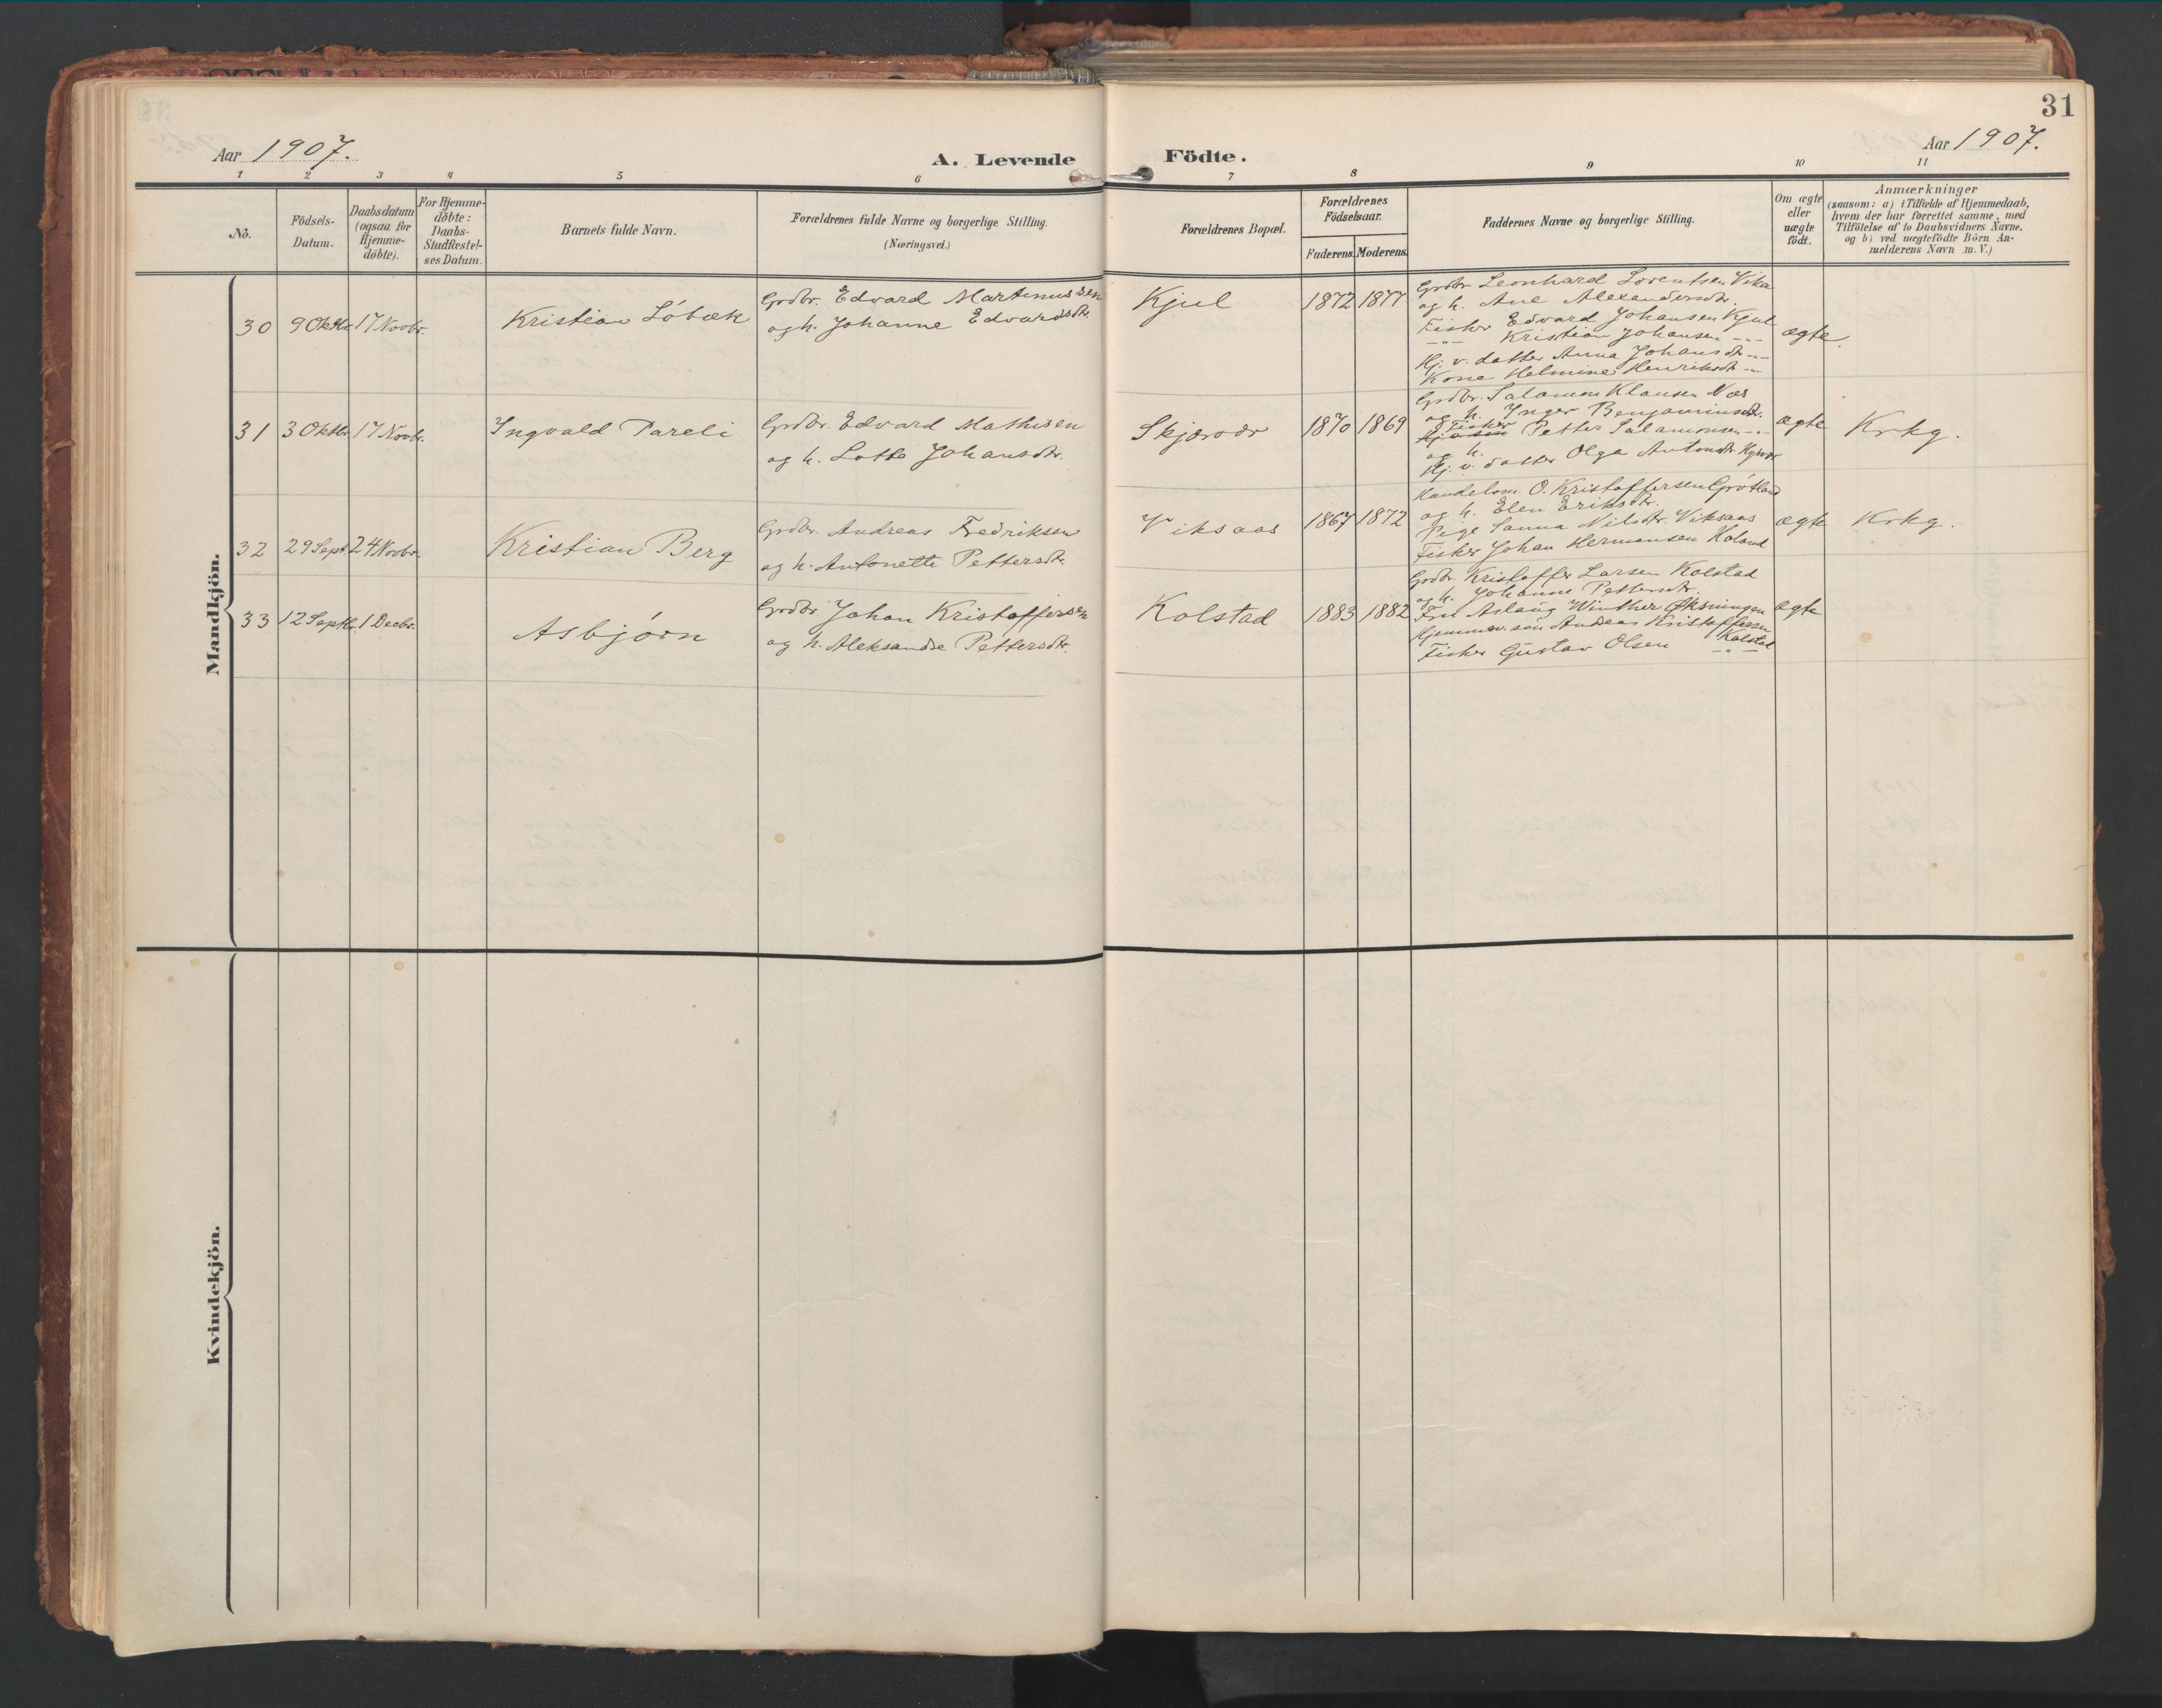 31
Aar 1907.
A. Levende Födte.
Aar 1907.
1 2 3 4 5 6 7 8 9 10 11
No.
Födsels-
Datum.
Daabsdatum
(ogsaa for
Hjemme-
döbte).
For Hjemme-
döbte:
Daabs-
Stadfæstel-
ses Datum.
Barnets fulde Navn.
Forældrenes fulde Navne og borgerlige Stilling.
(Næringsvei.)
Forældrenes Bopæl.
Forældrenes
Födselsaar.
Faderens. Moderens.
Faddernes Navne og borgerlige Stilling.
Om ægte
eller
uægte
født.
Anmærkninger
(saasom: a) i Tilfælde af Hjemmedaab,
hvem der har forrettet samme, med
Tilföielse af to Daabsvidners Navne.
og b) ved uægtefödte Börn An-
melderens Navn m. V.)
Mandkjön.
30 9 Oktbr. 17 Novbr. Kristian Löbæk
Grdbr. Edvard Martinussen
og h. Johanne Edvardsdtr.
Kjul 1872 1877
Grdbr. Leonhard Lorentsen Vika
og h. Ane Alexandersdtr.
Fisker Edvard Johansen Kjul
-"- Kristian Johansen -"-
Hj. v. datter Anna Johansdtr. -"-
Kone Helmine Henriksdtr. -"-
ægte.
31 3 Oktbr. 17 Novbr. Ingvald Pareli
Grdbr. Edvard Mathisen
og h. Lotte Johansdtr.
Skjærvær 1870 1869
Grdbr. Salamon Klausen Næs
og h. Inger Benjaminsdtr.
Fisker Petter Salamonsen -"-
og h.
Hj. v. datter Olga Antonsdtr.
ægte Krkg.
32 29 Sept. 24 Novbr. Kristian Berg
Grdbr. Andreas Fredriksen
og h. Antonette Pettersdtr.
Viksaas 1867 1872
Handelsm. O. Kristoffersen Grötland
og h. Elen Eriksdtr.
Pige Sanna Nilsdtr. Viksaas
Fisker Johan Hermansen Holand
ægte Krkg.
33 12 Septbr. 1 Decbr. Asbjörn
Grdbr. Johan Kristoffersen
og h. Aleksandre Pettersdtr.
Kolstad 1883 1882
Grdbr. Kristoffer Larsen Kolstad
og h. Johanne Pettersdtr.
Fru Aslaug Winther Öksningen
Hjemmev. sön Andreas Kristoffersen
Kolstad
Fisker Gustav Olsen -"-
ægte
Kvindekjön.